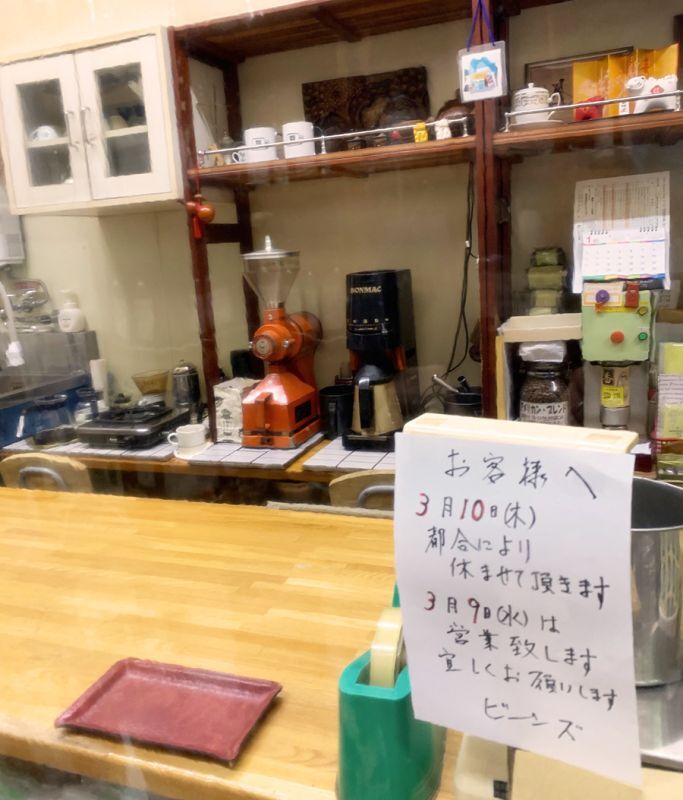 BONMAC
1
リカン・ブレンド
お客様へ
3月10日(木)
都合により
休ませて頂きます
3月9日(水)は
営業致します
宜しくお願いします
ビーンズ